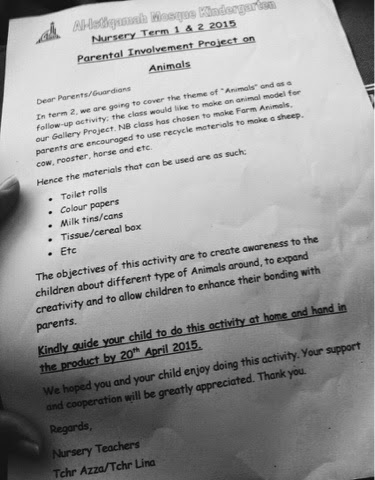 Al-Istiqamah Mosque Kindergarten
Nursery Term 1 & 2 2015
Parental Involvement Project on
Animals
Dear Parents/Guardians
In term 2, we are going to cover the theme of "Animals" and as a
follow-up activity; the class would like to make an animal model for
our Gallery Project. NB class has chosen to make Farm Animals,
parents are encouraged to use recycle materials to make a sheep,
cow, rooster, horse and etc.
Hence the materials that can be used are as such;
• Toilet rolls
• Colour papers
• Milk tins/cans
• Tissue/cereal box
• Etc
The objectives of this activity are to create awareness to the
children about different type of Animals around, to expand
creativity and to allow children to enhance their bonding with
parents.
Kindly guide your child to do this activity at home and hand in
the product by 20th April 2015.
We hoped you and your child enjoy doing this activity. Your support
and cooperation will be greatly appreciated. Thank you.
Regards,
Nursery Teachers
Tchr Azza/Tchr Lina